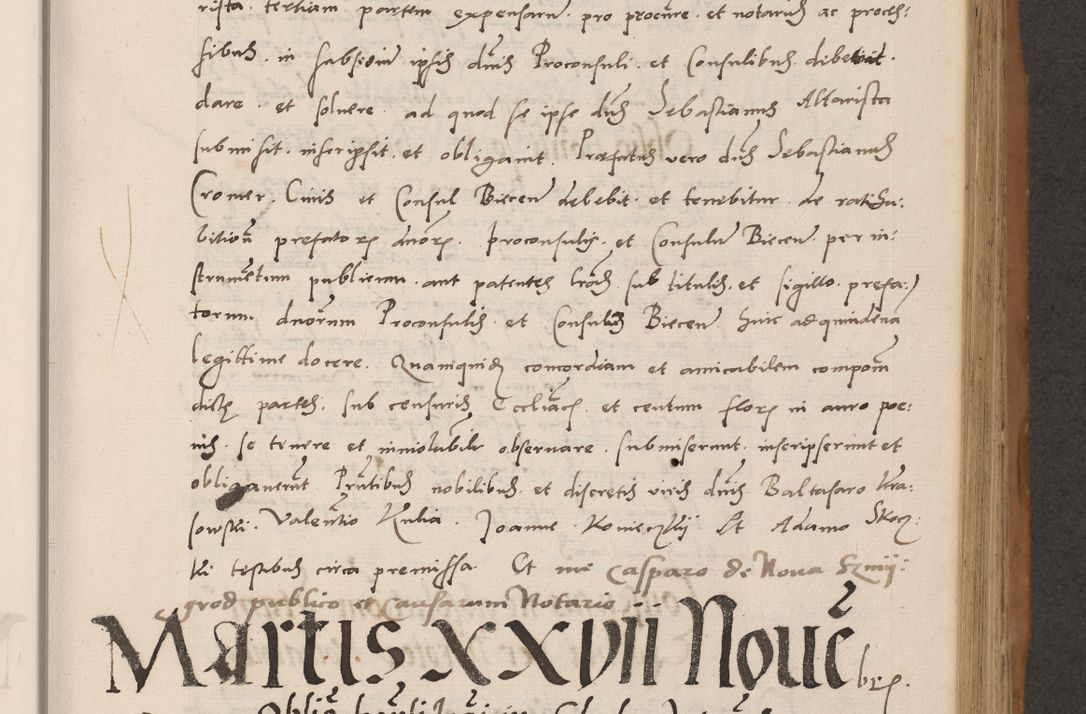 rista tertiam partem expensarum pro procure et notarius ac proces:
sibus in subsidium ipsis dnis Proconsuli et Consulibus debebit
dare et soluere ad quod se ipse dns Sebastianus Altarista
submisit inscripsit et obligauit Præfatus vero dns Sebastianus
Cromer Ciuis et Consul Biecen debebit et tenebitur de ratiha:
bitione prefatorum dnorum Proconsulis et Consulum Biecen per in:
strumentum publicum aut patentes lras sub titulis et sigillo prefa:
torum dnorum Proconsulis et Consulum Biecen huic ad quindena
legittime docere Quamquidem concordiam et amicabilem compom
dictę partes sub censuris Eccliacis et centum floren in auro poe:
nis se tenere et inuiolabilr obseruare submiserunt inscripserunt et
obligauerunt Prntibus nobilibus et discretis viris dnis Baltasaro Kra:
sowski Valentio Kulia Joanne Konieczkij Et Adamo Skocz:
ki testibus circa premissa Et me Casparo de Noua Szmij:
grod publico et Causarum Notario
Martis XXVII Nouebr